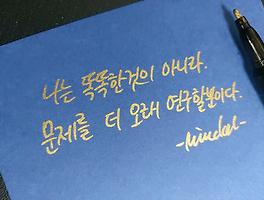 나는 똑똑한것이 아니라.
문제를 더 오래 연구할뿐이다.